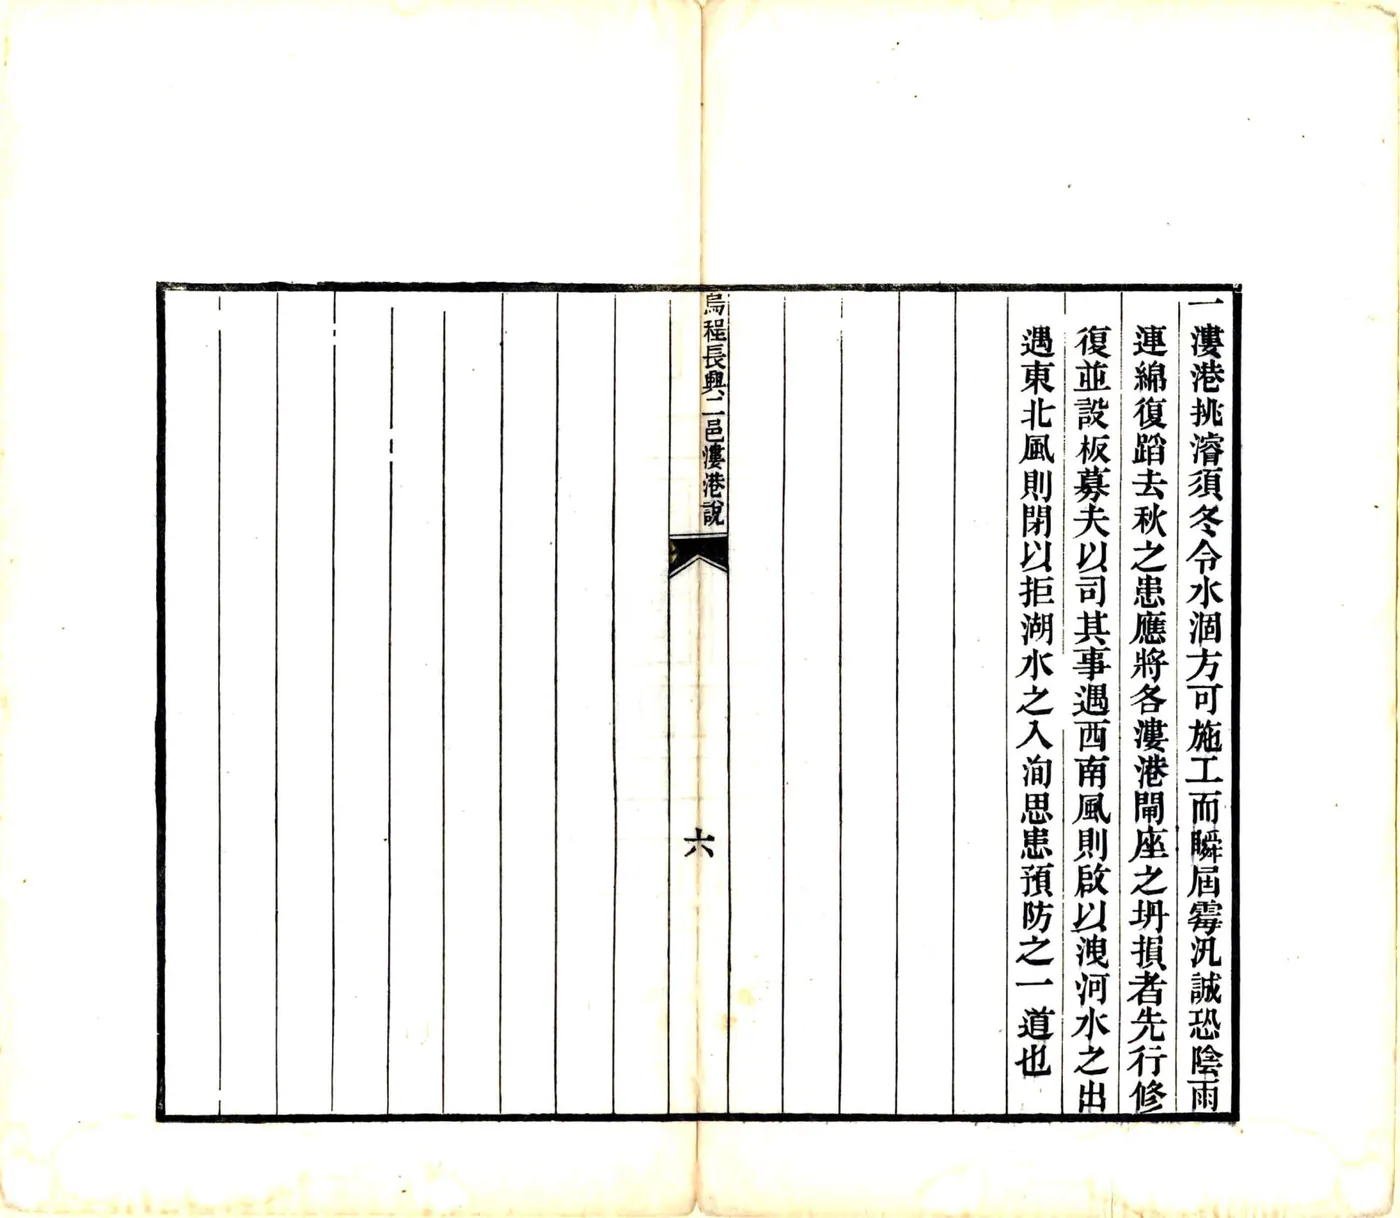 一漊港挑濬須冬令水涸方可施工而瞬屆霉汛誠恐陰雨
連綿復蹈去秋之患應將各漊港閘座之坍損者先行修
復並設板募夫以司其事遇西南風則啟以洩河水之出
遇東北風則閉以拒湖水之入洵思患預防之一道也
烏程長興二邑漊港說
六